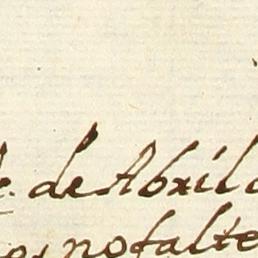 de Abril
no falte